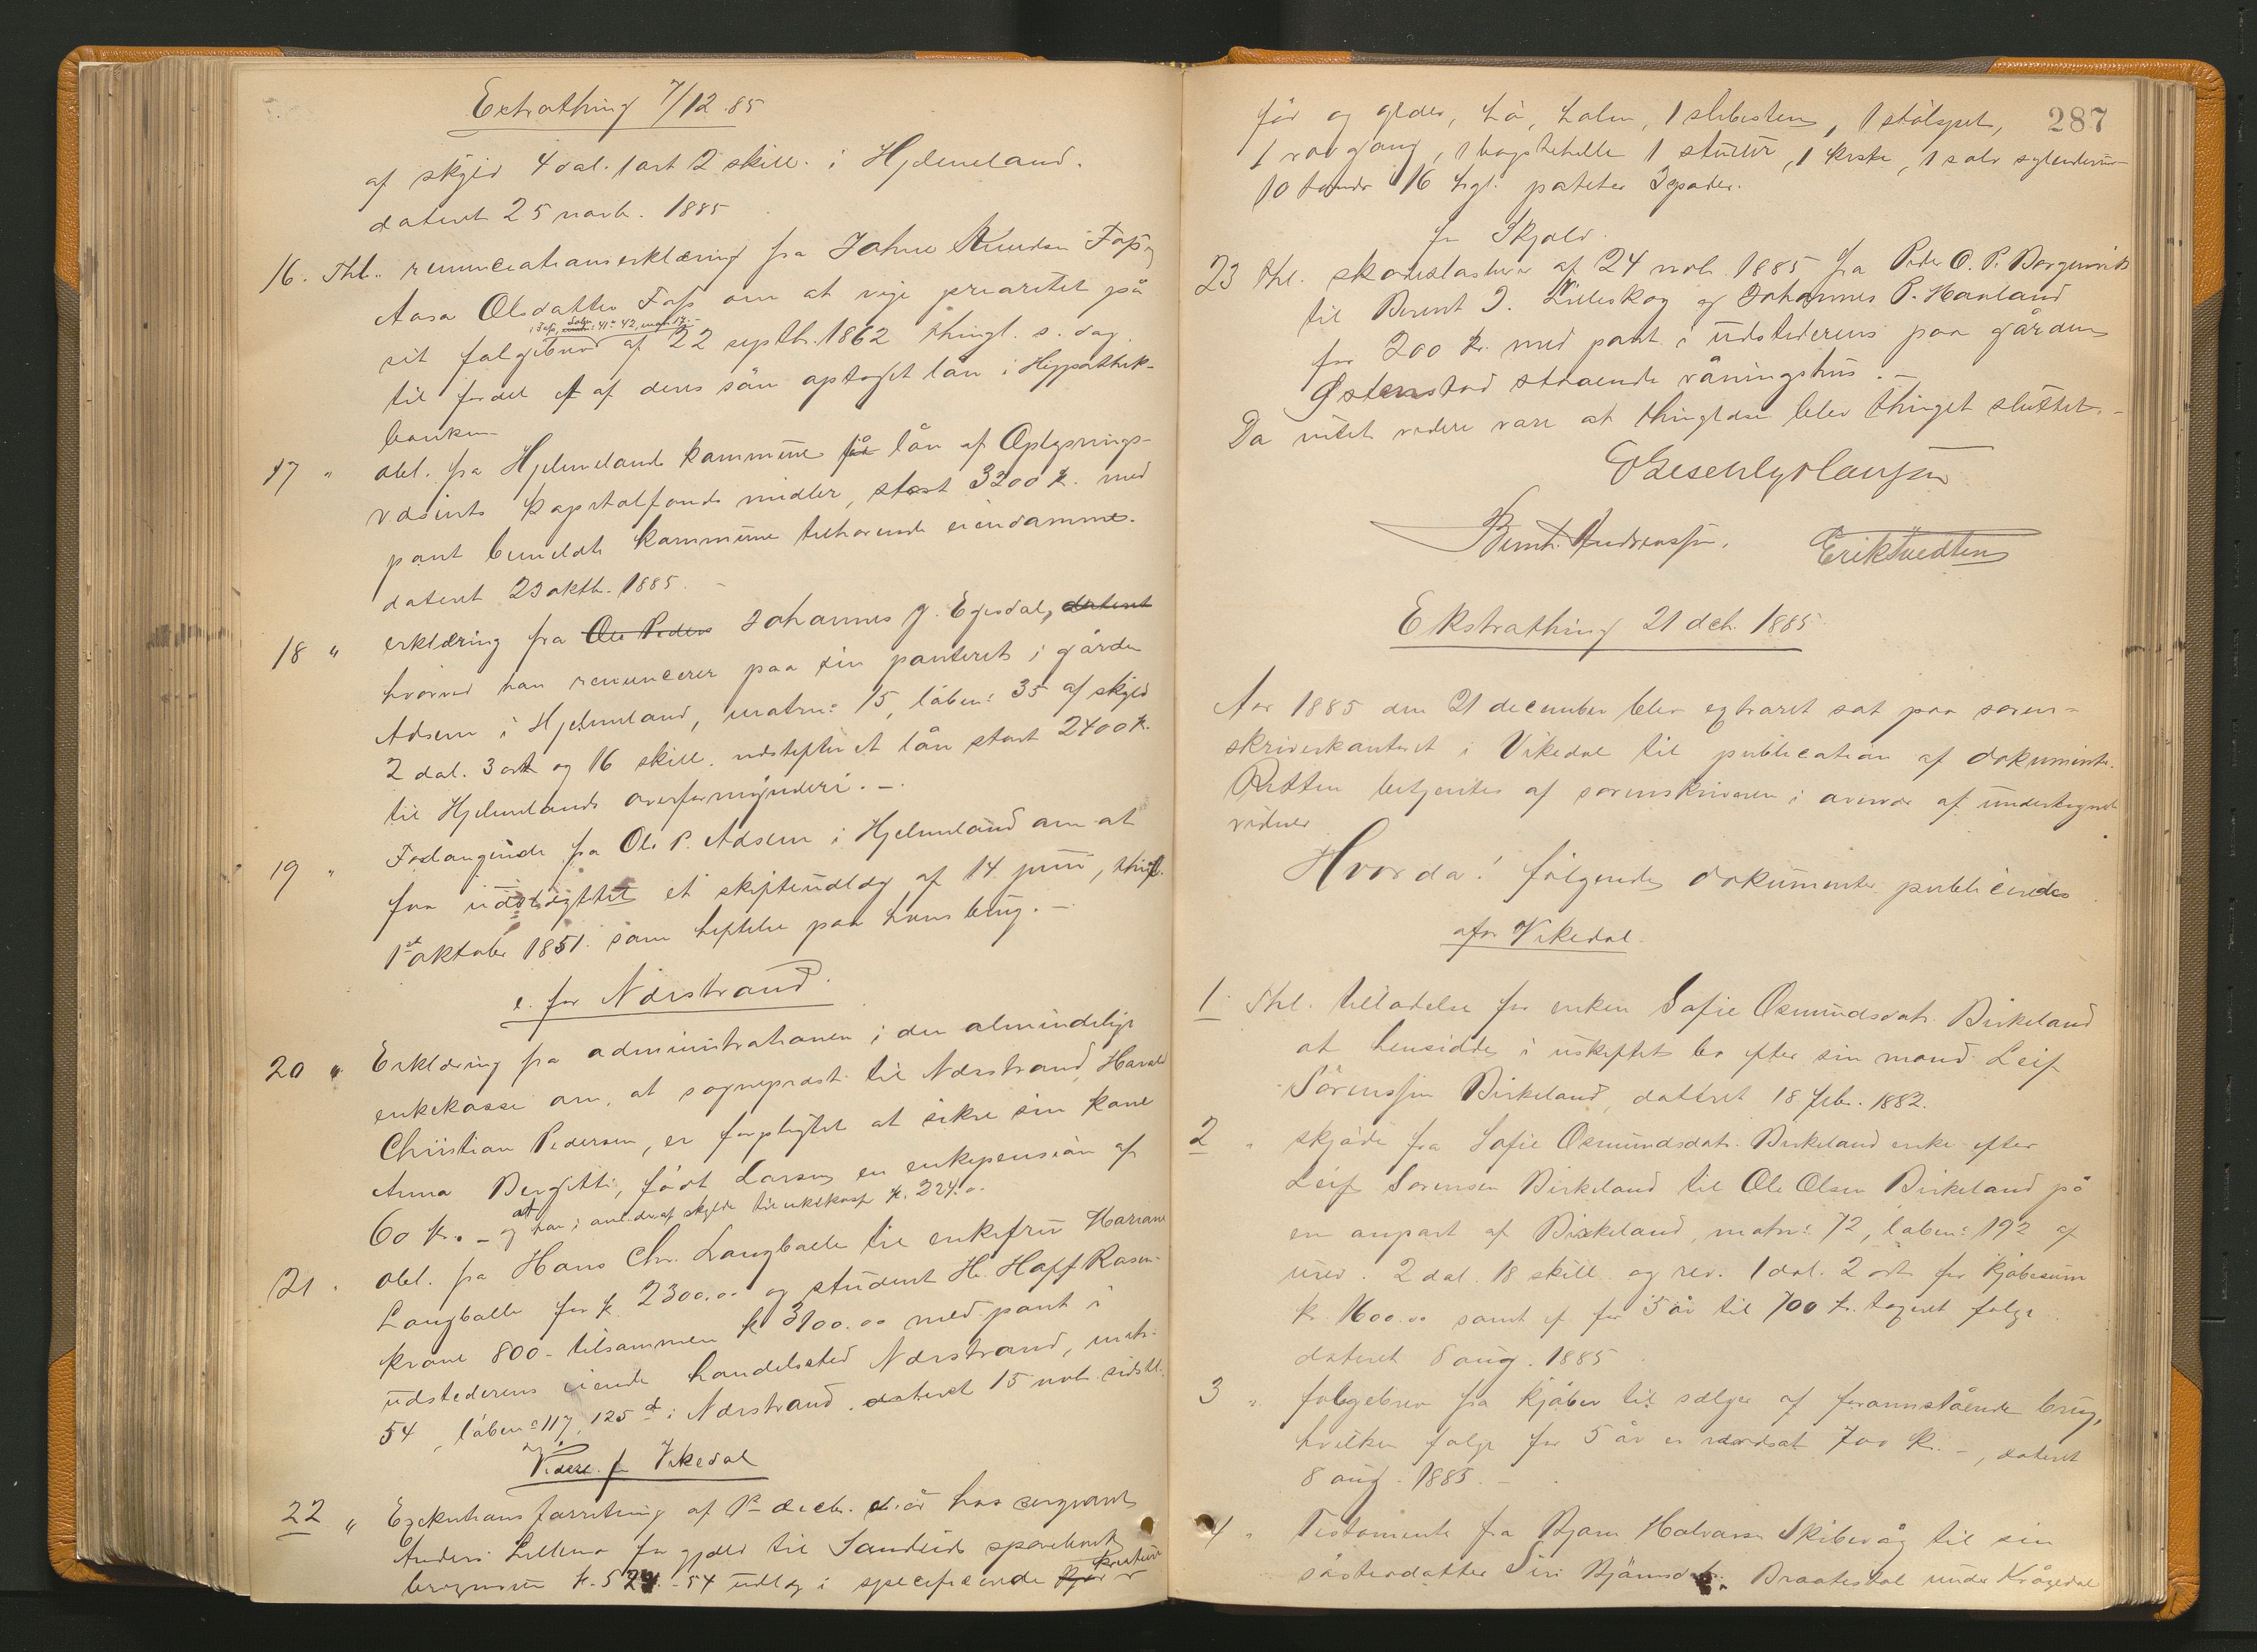 Extrathing 7/12.85
af skyld 4 dal. 1 ort 2 skill. i Hjelmeland.
dateret 25 novb. 1885
16. Thl. renunciationserklæring fra Johne Knudsen Fos og
Aasa Olsdatter Foss om at vige prioritet på
sit folgebrev af 22 septbr. 1862 thingl. s. dag
til fordel et af deres sön optaget lån i Hypothek-
banken
17 " obl. fra Hjelmelands kommune lån af Oplysnings-
væsents kapitalfonds midler, stort 3200 k. med
pant bemeldte kommune tilhorende eiendomme.
dateret 23 oktb. 1885. -
18 " erklæring fra Ole Peders Johannes J. Egesdal, dateret
hvorved han renuncerer paa sin panteret i gården
Adsem i Hjelmeland, matrn: 15, löben: 35 af skyld
2 dal. 3 ort og 16 skill. udstepter et lån stort 2400 k.
til Hjelmelands overformynderi. -
19 " Forlangende fra Ole P. Adsem i Hjelmeland om at
faa udslettet et skifteudlæg af 14 juni, thigl.
1st oktober 1851. som heftelse paa hans brug. -
e. for Nærstrand.
20 " Erklæring fra administrationen i den almindelige
enkekasse om, at sogneprest til Nærstrand, Harald
Christian Pedersen, er forpligtet at sikre sin kone
Anna Bergitte, födt Larsen en enkepension af
60 kr. - og at han i anl. deraf skylder til enkekasse k. 224.
21. obl. fra Hans Chr. Langballe til enkefru Mariane
Langballe for k. 2300.00 og student H. Hoff Rosen-
krone 800 - tilsammen k 3100.00 med pant i
udstederens eiende handelssted Nærstrand, matr:
54, löben: 117, 125 d i Nærstrand. dateret 15 nob. sidstl.
Videre f. Vikedal
22 " Exekutions forretning af 1ste decb. d. år hos sergeant
Anders Lillemo for gjeld til Sandeids sparebank
k. 524.-54 udlæg i specificerede
287
får og geder, hö, halm, 1 slibesten, 1 stålspet,
1 vævgang, 1 baghehelle 1 stuttur, 1 kiste, 1 sölv sylenderur
10 tönder 16 hgl. poteter 3 spader.
for Skjold.
23 thl. skadeslosbrev af 24 nob. 1885 fra Peder O. P. Borgenvik
til Berent J. Lilleskog og Johannes P. Hauland
for 200 kr. med pant i udstederens paa gården
Östenstad staaende våningshus. -
Da intet videre var at thinglæse blev thinget sluttet. -
Bernt. Andreassen. Erik Tvedten
Ekstrathing 21 dcb. 1885.
Aar 1885 den 21 december blev extraret sat paa soren-
skriverkontoret i Vikedal til publication af dokumenter.
Retten betjentes af sorenskriveren i overvær af undertegned
vidner
Hvorda: følgende dokumenter publiceredes
a for Vikedal.
1. Thl. tilladelse for enken Sofie Osmundsdatr. Birkeland
at hensidde i uskiftet bo efter sin mand Leif
Sörenssen Birkeland, datteret 18 febr. 1882.
2 " skjöde fra Sofie Osmundsdatr. Birkeland enke efter
Leif Sorensen Birkeland til Ole Olsen Birkeland på
en anpart af Birkeland, matrn: 72, löben: 192 af
urev. 2 dal. 18 skill. og rev. 1 dal. 2 ort for kjöbesum
kr. 1600.00 samt f. for 5 år til 700 kr. taxeret folge
dateret 8 aug. 1885.
3 " folgebrev fra kjöber til sælger af foranstående brug,
hvilken folge for 5 år er værdsat 700 kr. -, dateret
8 aug. 1885. -
4 " Testamente fra Bjarn Halvorsen Skibevåg til sin
södsterdatter Siri Bjarnsdtr. Braatestöl under Krågedal